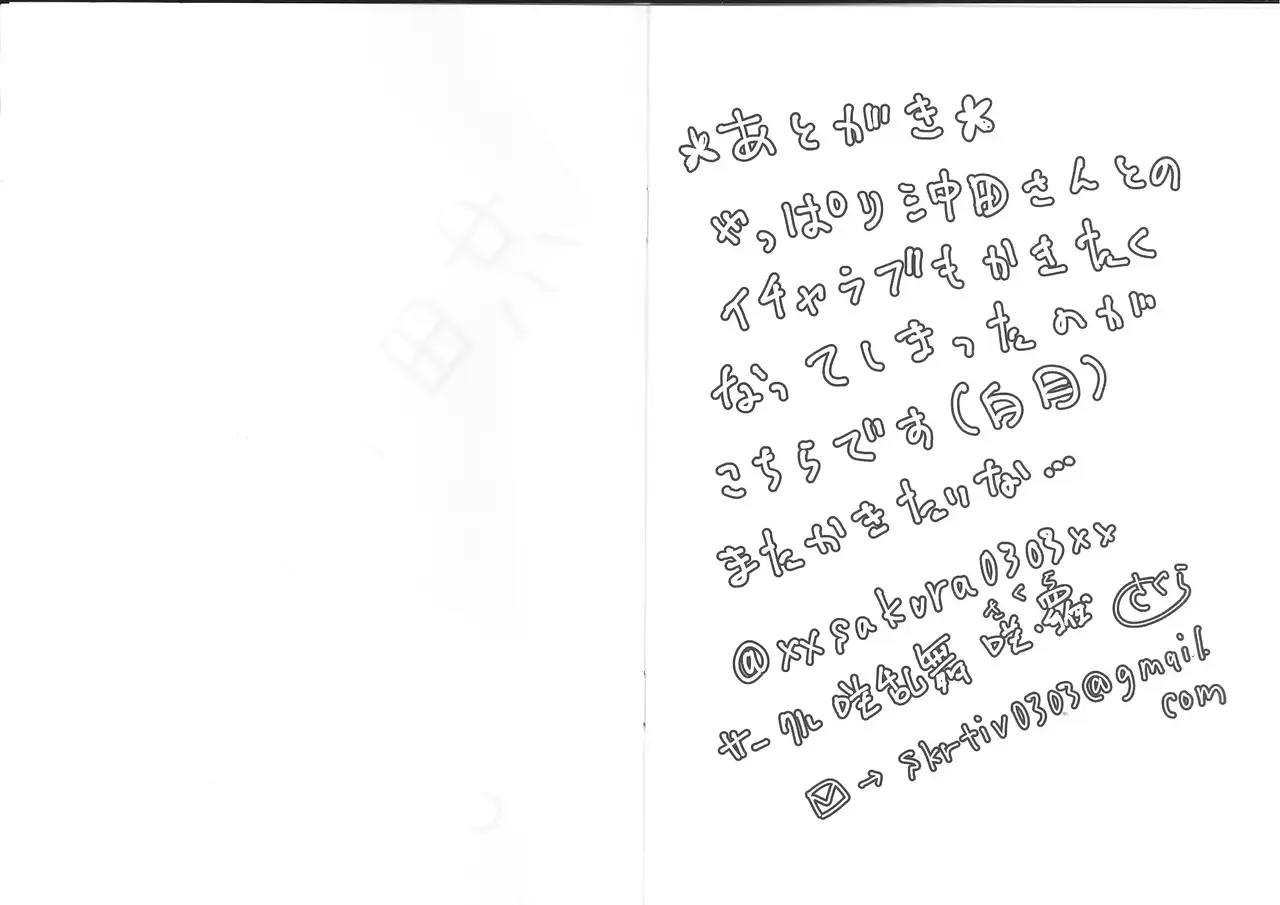 ☆あとがき☆
やっぱり沖田さんとの
イチャラブもかきたく
なってしまったのが
こちらです(白目)
またかきたいな…
@xxsakura0303xx
サークル 咲乱舞
さくら
✉→skrtiv0303@gmail.
com